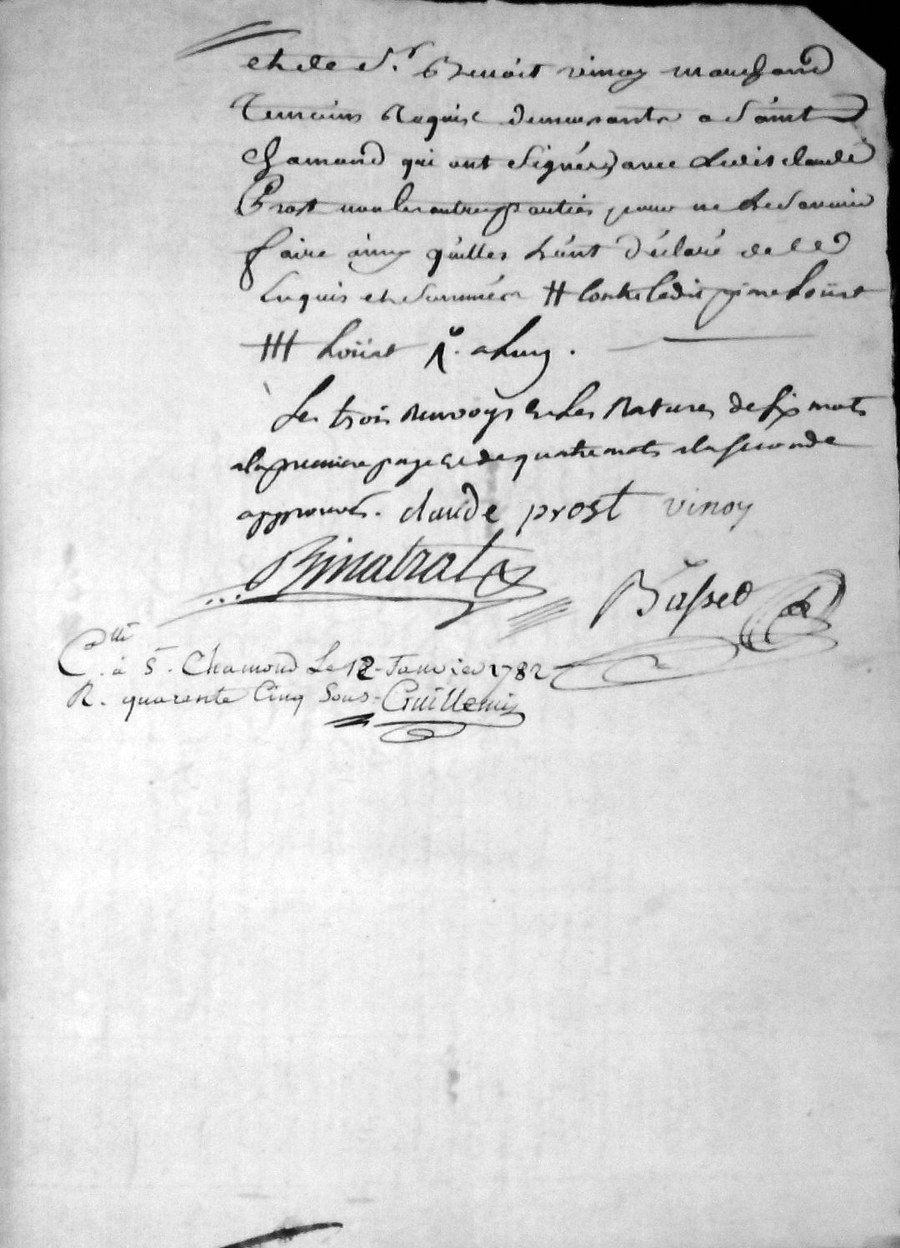 et de Sr. Benoit vinoy marchand
Temoins Requis demeurants a Saint
chamand qui ont Signés avec Ledit claude
Prost non les autres parties pour ne Le Savoir
faire ainsy qu'illes L'ont déclaré de ce
Enquis et Sommées # Contre Ledit
###
Les trois Renvoys & Les Ratures de six mots
a la premiere page & de quatre mots a la seconde
approuvés. claude prost vinoy
Binatrat
C.lé à St. Chamond Le 12 Janvier 1782
R. quarente Cinq Sous Guillemin